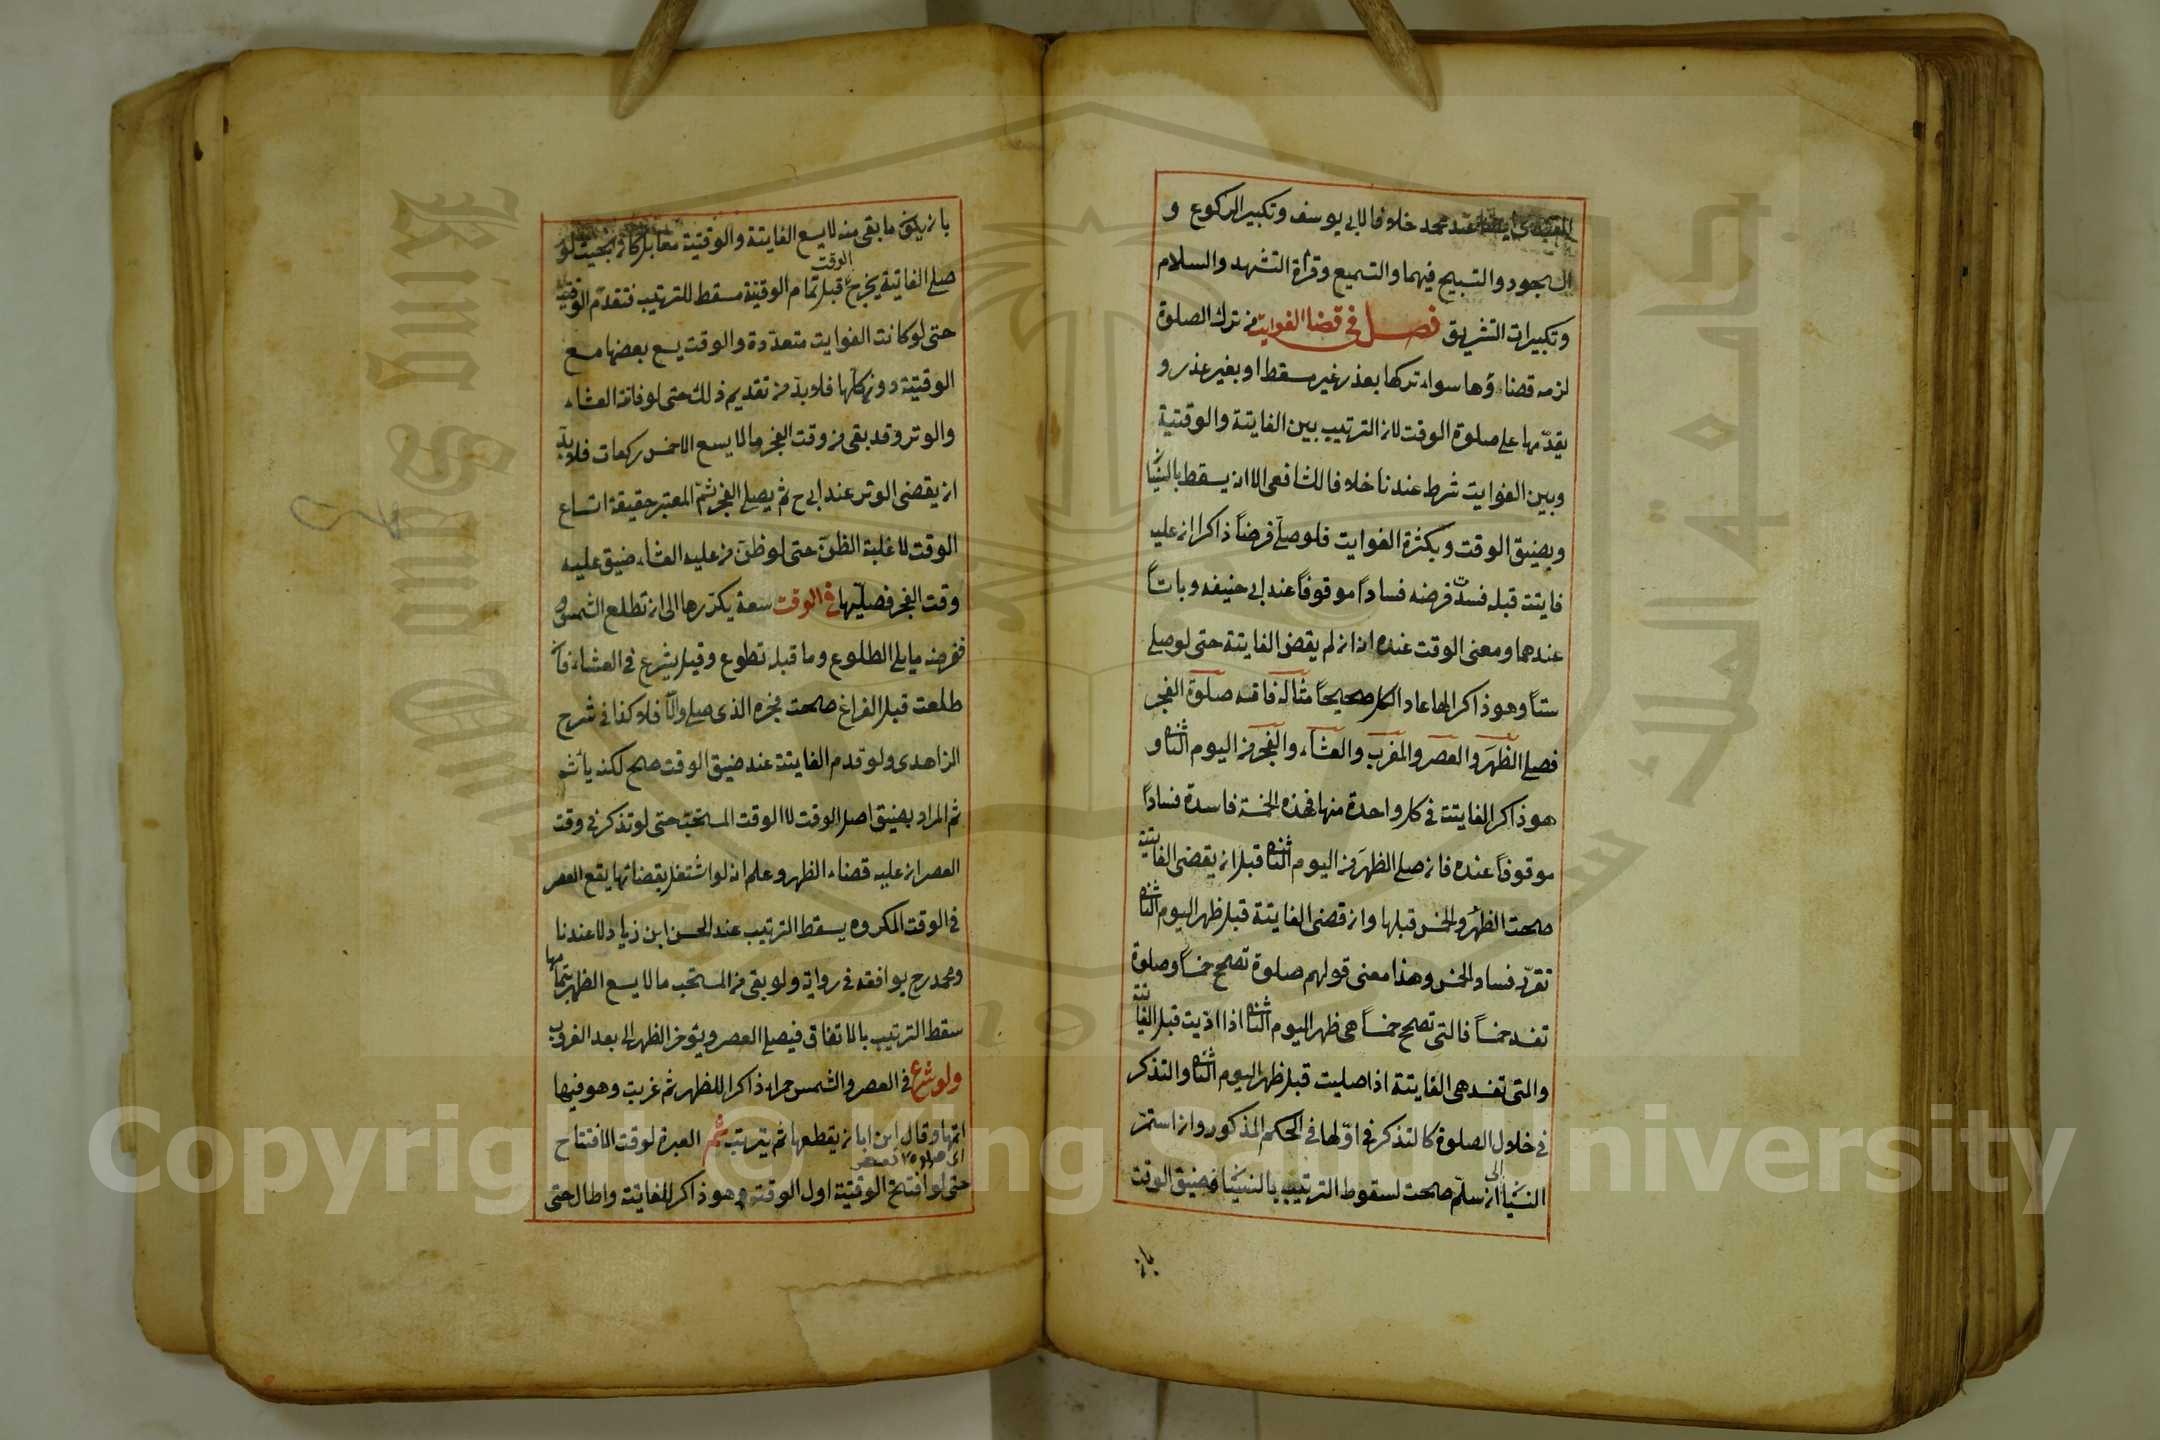 المقتدى ايضا عند محمد خلافا لابي يوسف وتكبير الركوع و
السجود والتسبيح فيهما والتسميع وقراة التشهد والسلام
وتكبيرات التشريق فصل في قضا الفوايت من ترك الصلوة
لزمه قضاؤها سواء تركها بعذر غير مسقط او بغير عذر و
يقدّمها على صلوة الوقت لان الترتيب بين الفايتة والوقتية
وبين الفوايت شرط عندنا خلافا للشافعي الا انه يسقط بالنسيان
وبضيق الوقت وبكثرة الفوايت فلو صلى فرضاً ذاكرا ان عليه
فايتة قبله فسد فرضه فساداً موقوفاً عند ابي حنيفه وباتاً
عندهما ومعنى الوقت عنده انه ان لم يقض الفايتة حتى لو صلى
ستاً وهو ذاكر لها عاد الكل صحيحاً مثاله فاتته صلوة الفجر
فصلى الظهر والعصر والمغرب والعشاء والفجر من اليوم الثانى و
هو ذاكر الفايتة في كل واحدة منها فهذه الخمسة فاسدة فساداً
موقوفاً عنده فان صلى الظهر من اليوم الثانى قبل ان يقضى الفايتة
صحت الظهر والخمس قبلها وان قضى الفايتة قبل ظهر اليوم الثانى
تقرّر فساد الخمس وهذا معنى قولهم صلوة تصحح خمساً وصلوة
تفسد خمساً فالتى تصحح خمساً هى ظهر اليوم الثانى اذا اديت قبل الفايتة
والتى تفسد هى الفايتة اذا صليت قبل ظهر اليوم الثانى والتذكر
في خلال الصلوة كالتذكر في اوّلها في الحكم المذكور وان استمرّ
النسيان الى ان سلّم صحت لسقوط الترتيب بالنسيان فضيق الوقت
بان
بان يكون ما بقى منه لا يسع الفايتة والوقتية معا بل كان بحيث لو
صلى الفايتة يخرج الوقت قبل تمام الوقتية مسقط للترتيب فتقدّم الوقتية
حتى لو كانت الفوايت متعدّدة والوقت يسع بعضها مع
الوقتية دون كلّها فلا بدّ من تقديم ذلك حتى لو فاته العشاء
والوتر وقد بقى من وقت الفجر ما لا يسع الا خمس ركعات فلا بدّ
ان يقضى الوتر عند ابي ح ثم يصلى الفجر ثمّ المعتبر حقيقة اتساع
الوقت لا غلبة الظنّ حتى لو ظنّ من عليه العشاء ضيق عليه
وقت الفجر فصلّيها في الوقت سعة يكرّرها الى ان تطلع الشمس و
فرضه ما يلى الطلوع وما قبله تطوع وقيل يشرع في العشاء فان
طلعت قبل الفراغ صحت فجره الذى صلى والّا فلا كذا في شرح
الزاهدى ولو قدم الفايتة عند ضيق الوقت صح لكنه يأثم
ثم المراد بضيق اصل الوقت لا الوقت المستحبّ حتى لو تذكر في وقت
العصر ان عليه قضاء الظهر وعلم انه لو اشتغل بقضائها يقع العصر
في الوقت المكروه يسقط الترتيب عند الحسن ابن زياد لا عندنا
ومحمد رح يوافقه في رواية ولو بقى من المستحب ما لا يسع الظهر بتمامها
سقط الترتيب بالاتفاق فيصلى العصر ويؤخر الظهر الى بعد الغروب
ولو شرع في العصر والشمس حمراء ذاكرا للظهر ثم غربت وهو فيها
اتمها وقال ابن ابان يقطعها ثم يترتب ثم العبرة لوقت الافتتاح
حتى لو افتتح الوقتية اول الوقت وهو ذاكر للفايتة واطال حتى